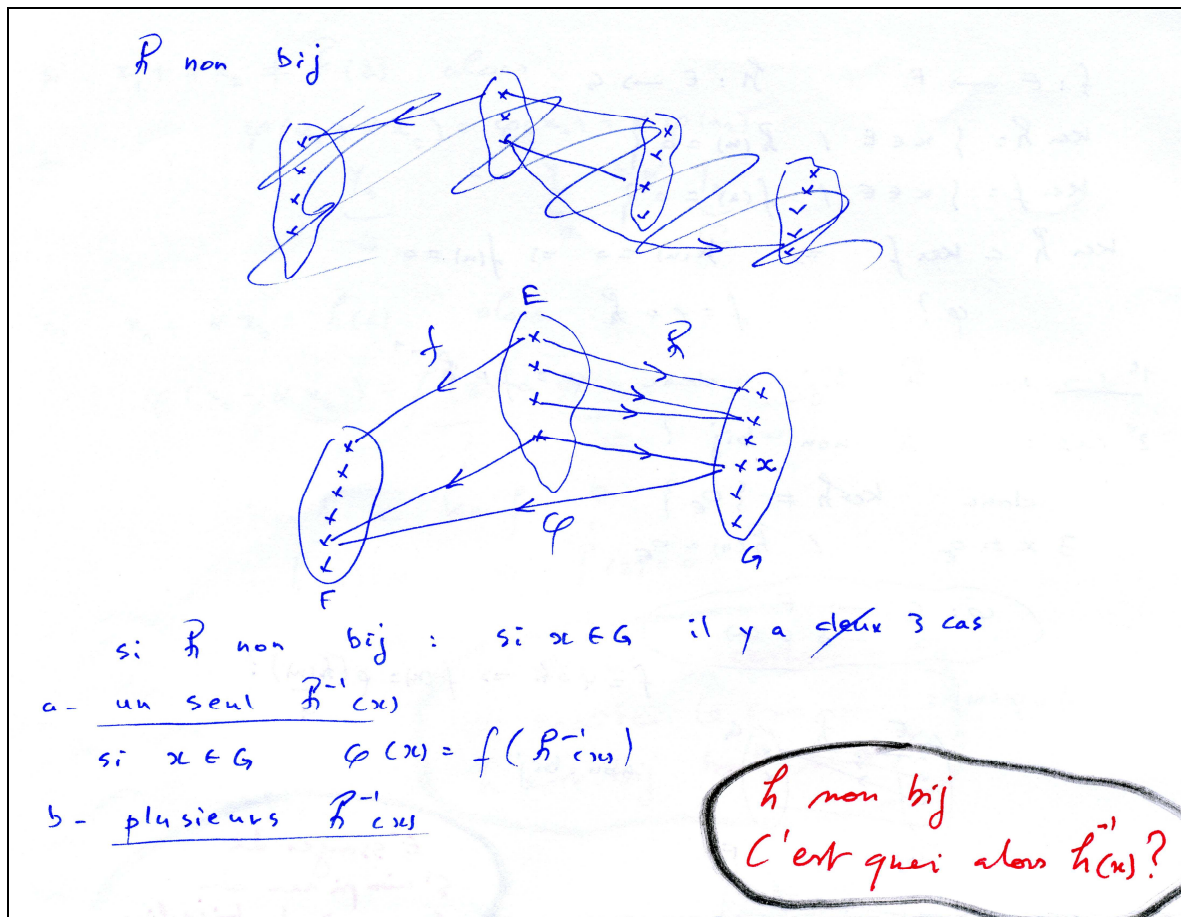 h non bij
E
f
h
x
φ
G
F
si h non bij : si x ∈ G il y a deux 3 cas
a - un seul h⁻¹(x)
si x ∈ G φ(x) = f(h⁻¹(x))
b - plusieurs h⁻¹(x)
h non bij
C'est quoi alors h⁻¹(x) ?